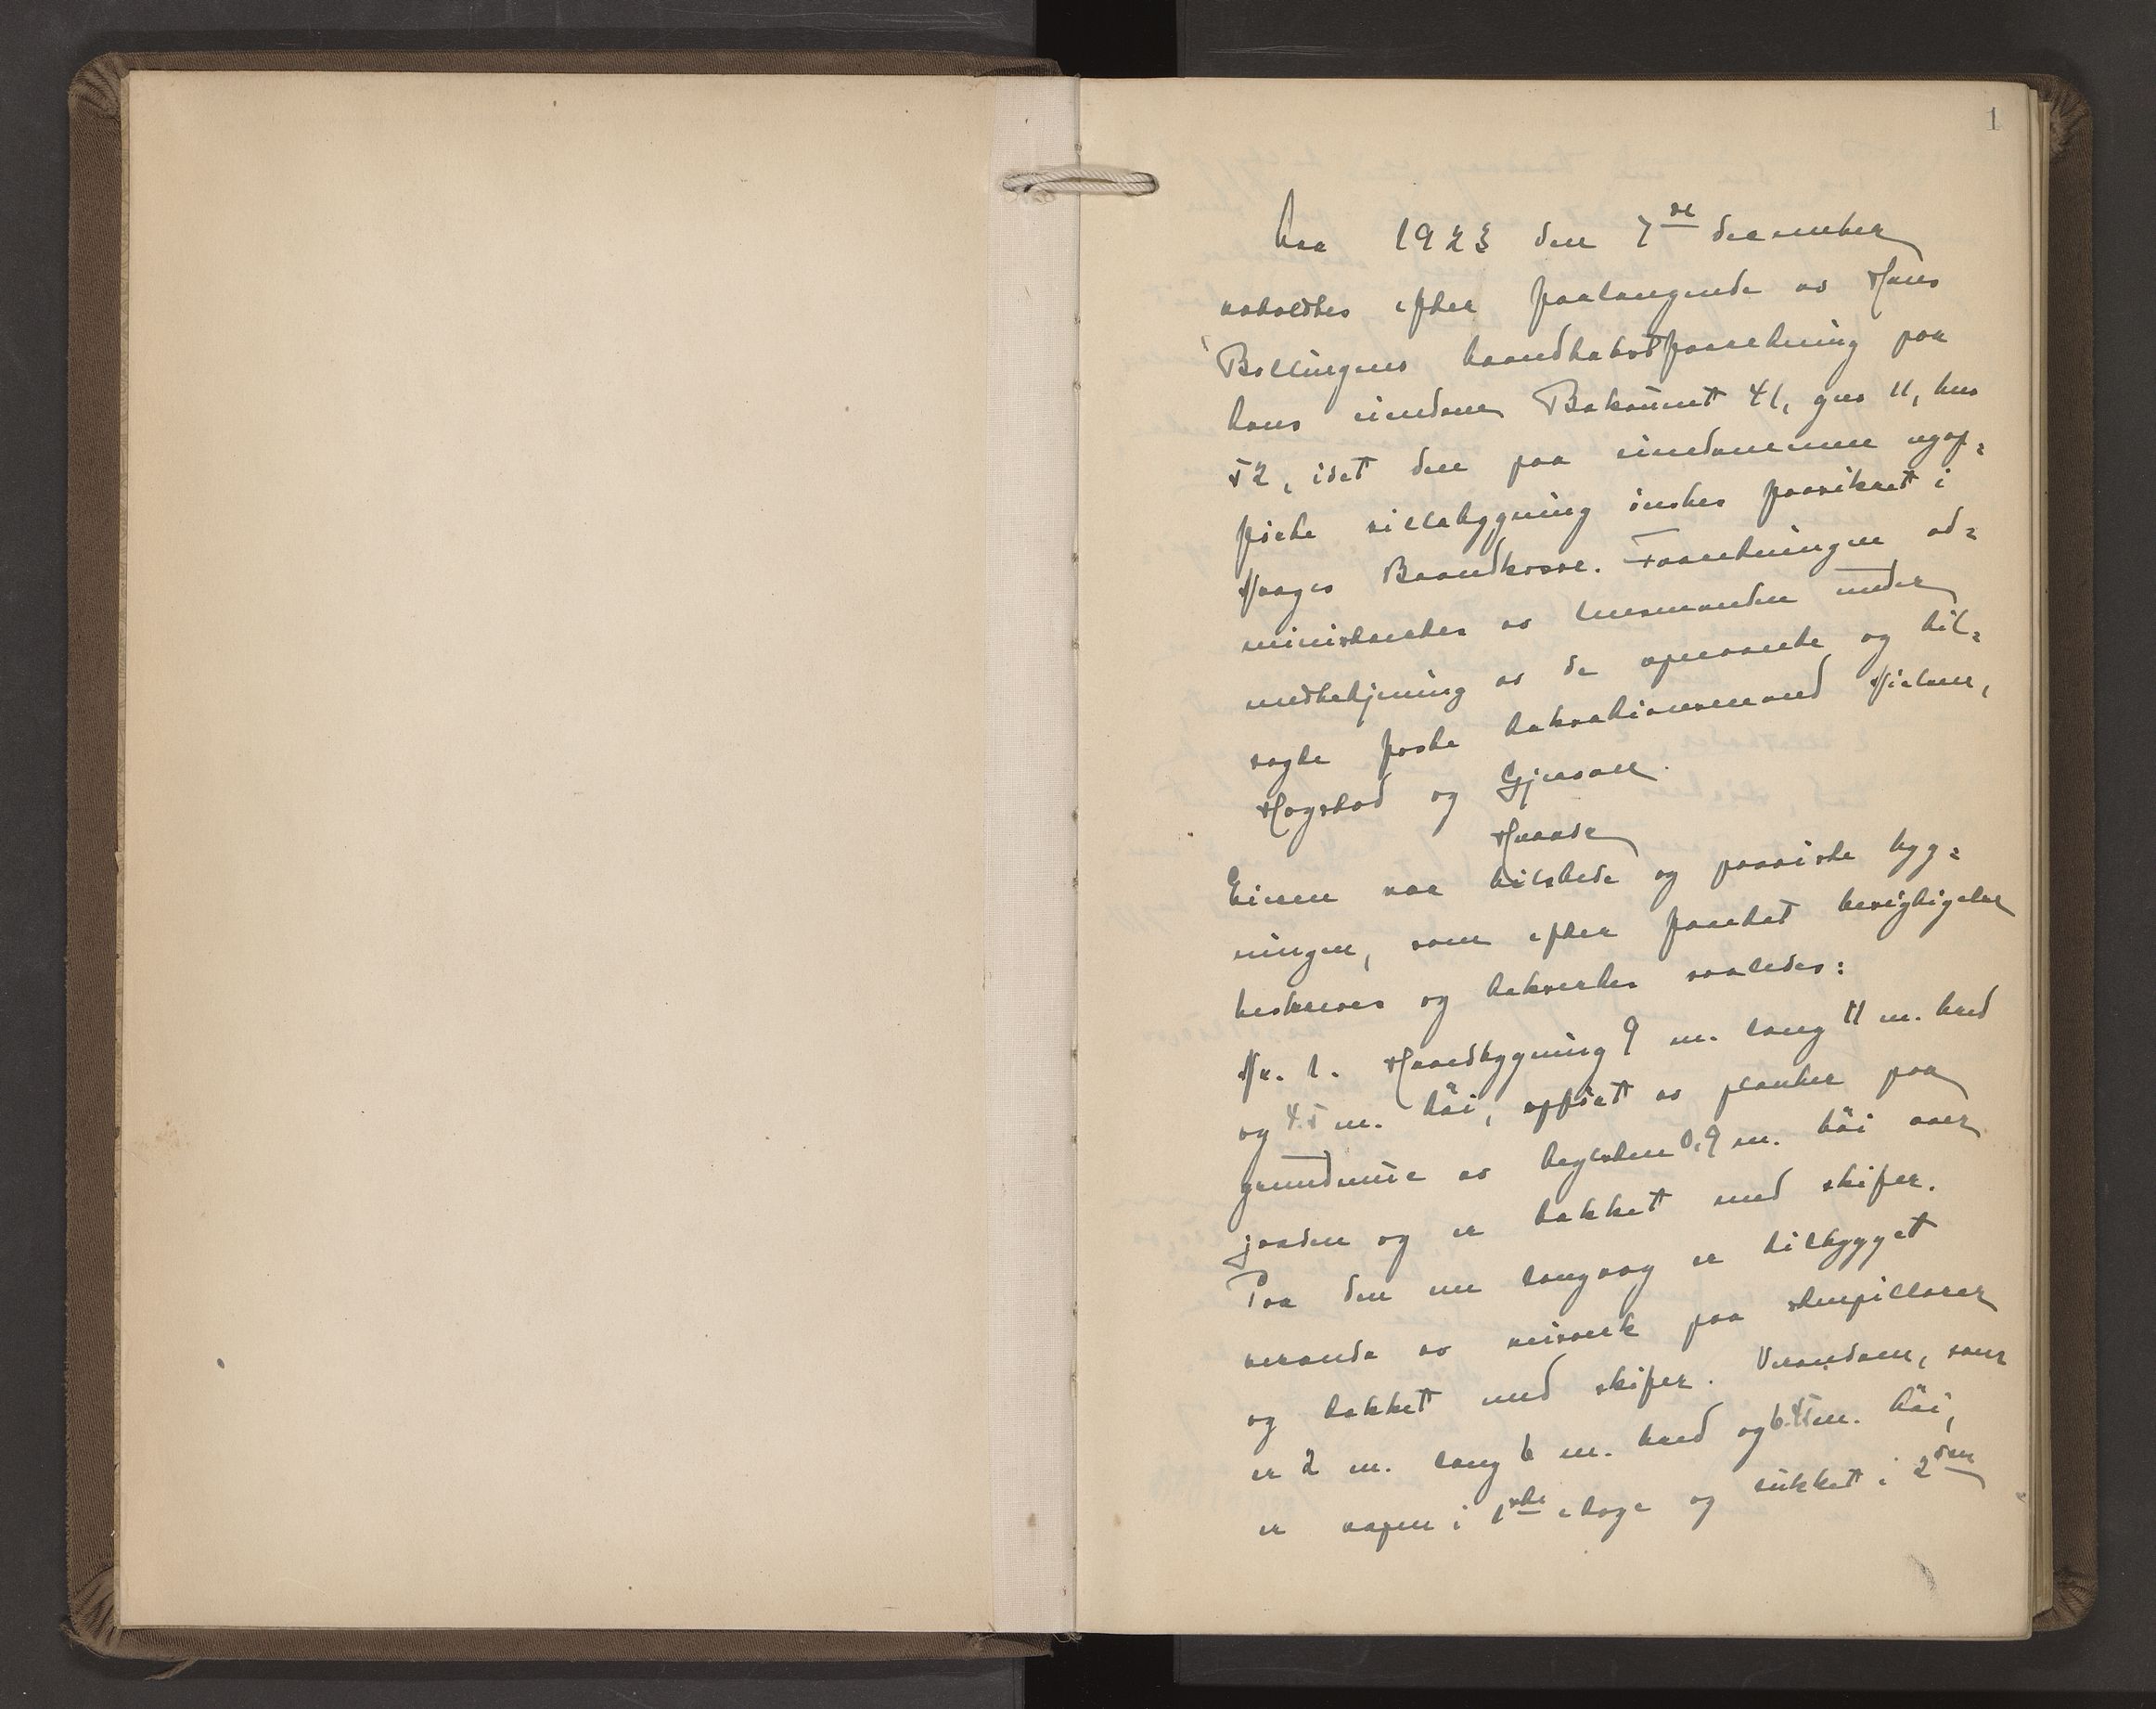 1
Aar 1923 den 7de december
avholdtes efter forlangende av Hans
Bollingmo branntakstforretning paa
hans eiendom Bakaunet 41, gnr 11, bnr
52, idet den paa eiendommen opf=
førte villabygning ønskes forsikret i
Norges Brandkasse. Forretningen ad=
ministreres av lensmanden under
medbetjening av de opnævnte og til=
sagte faste takstationsmænd Nielsen,
Hogstad og Gjervan.
Hvorda
Eieren var tilstede og paaviste byg=
ningen, som efter foretat besigtigelse
beskrives og taksertes saaledes:
Nr. 1. Hovedbygning 9 m. lang 11 m. bred
og 4.5 m. høi, opført av planker paa
grundmur av teglsten 0,9 m. høi over
jorden og er tækket med skifer.
Paa den ene langvæg er tilbygget
veranda av reisverk paa stenpillarer
og tækket med skifer. Verandaen, som
er 2 m. lang 6 m. bred og 6.45 m. høi,
er aapen i 1ste etage og lukket i 2den